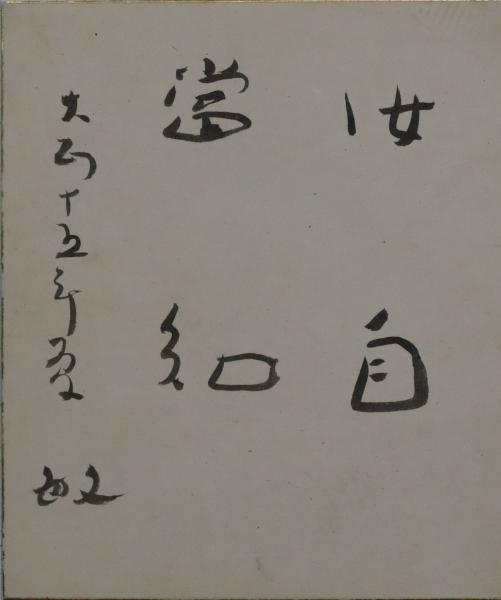 汝自
當知
大正十五年夏
敏